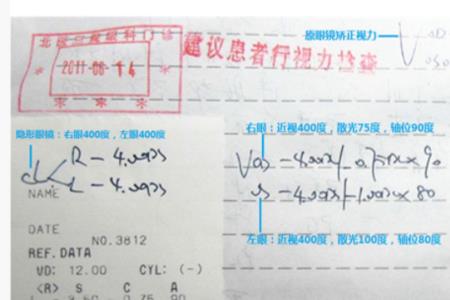 北医三院眼科门诊
2011-08-14
建议患者行视力检查
原眼镜矫正视力
隐形眼镜：右眼400度，左眼400度
R - 4.00DS
L - 4.00DS
右眼：近视400度，散光75度，轴位90度
VOD -4.00DS/-0.75DC×90
OS -4.00DS/-1.00DC×80
左眼：近视400度，散光100度，轴位80度
NAME
DATE
NO.3812
REF. DATA
VD: 12.00 CYL: (-)
<R> S C A